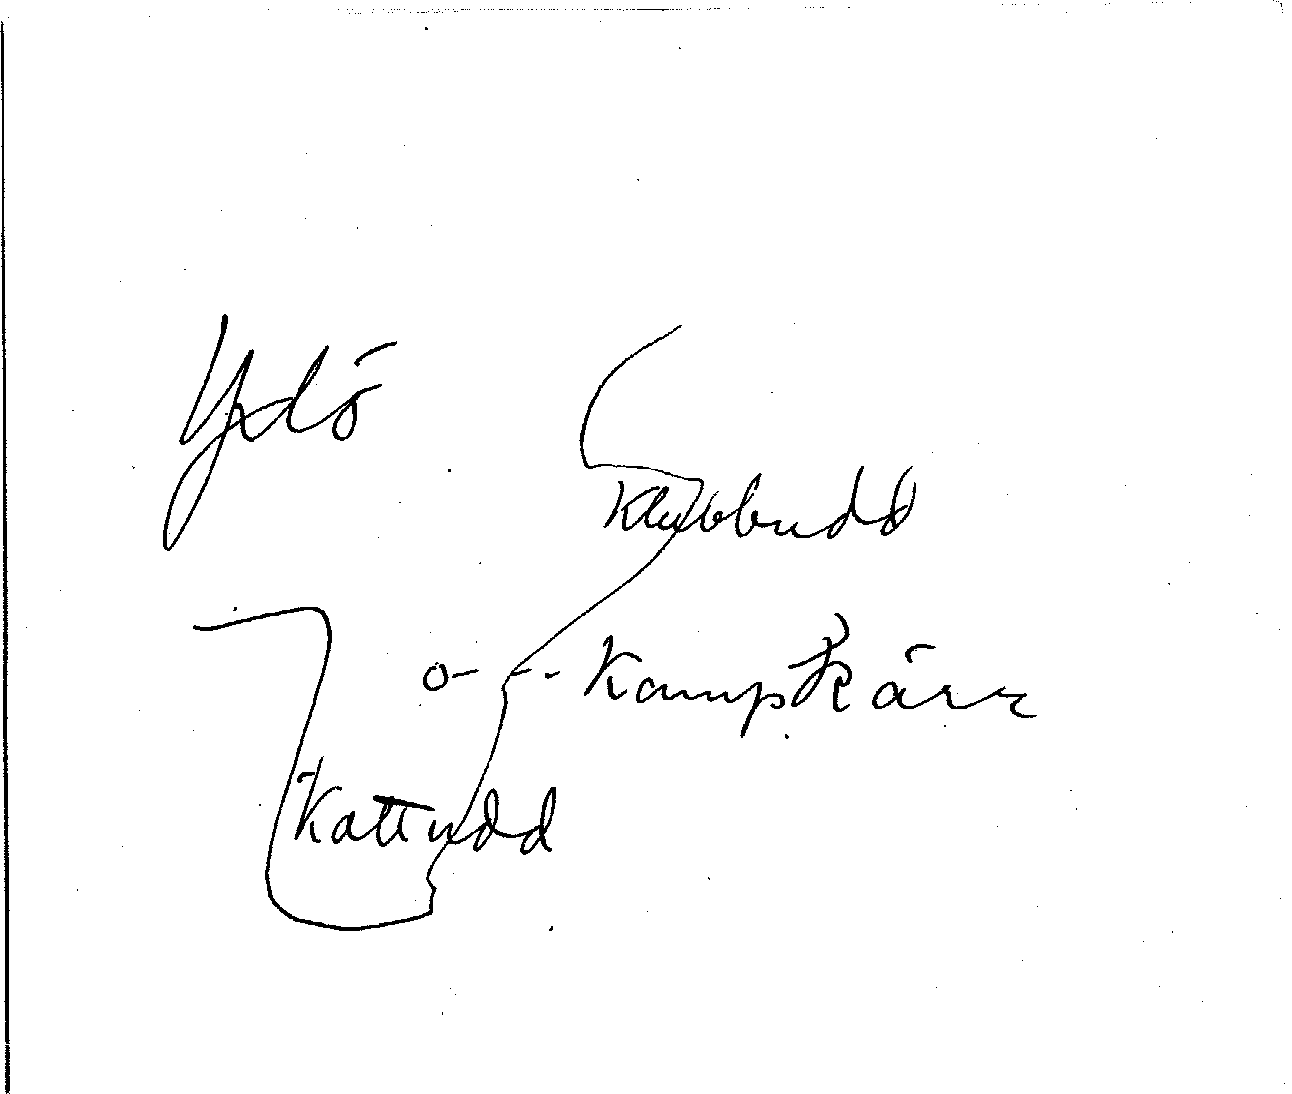 Yxlö
Klubbudd
Kampkärr
Kattudd